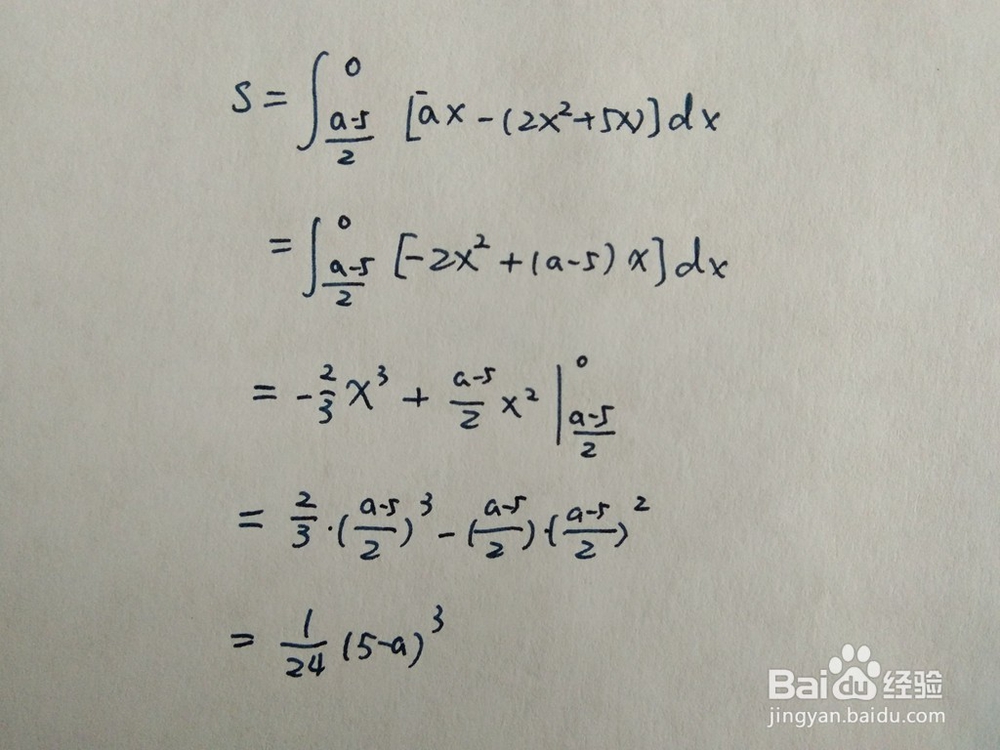 S = ∫_{\frac{a-5}{2}}^{0} [ax - (2x² + 5x)] dx
= ∫_{\frac{a-5}{2}}^{0} [-2x² + (a-5) x] dx
= -\frac{2}{3} x³ + \frac{a-5}{2} x² |_{\frac{a-5}{2}}^{0}
= \frac{2}{3} · (\frac{a-5}{2})³ - (\frac{a-5}{2}) · (\frac{a-5}{2})²
= \frac{1}{24} (5-a)³
Baidu 经验
jingyan.baidu.com